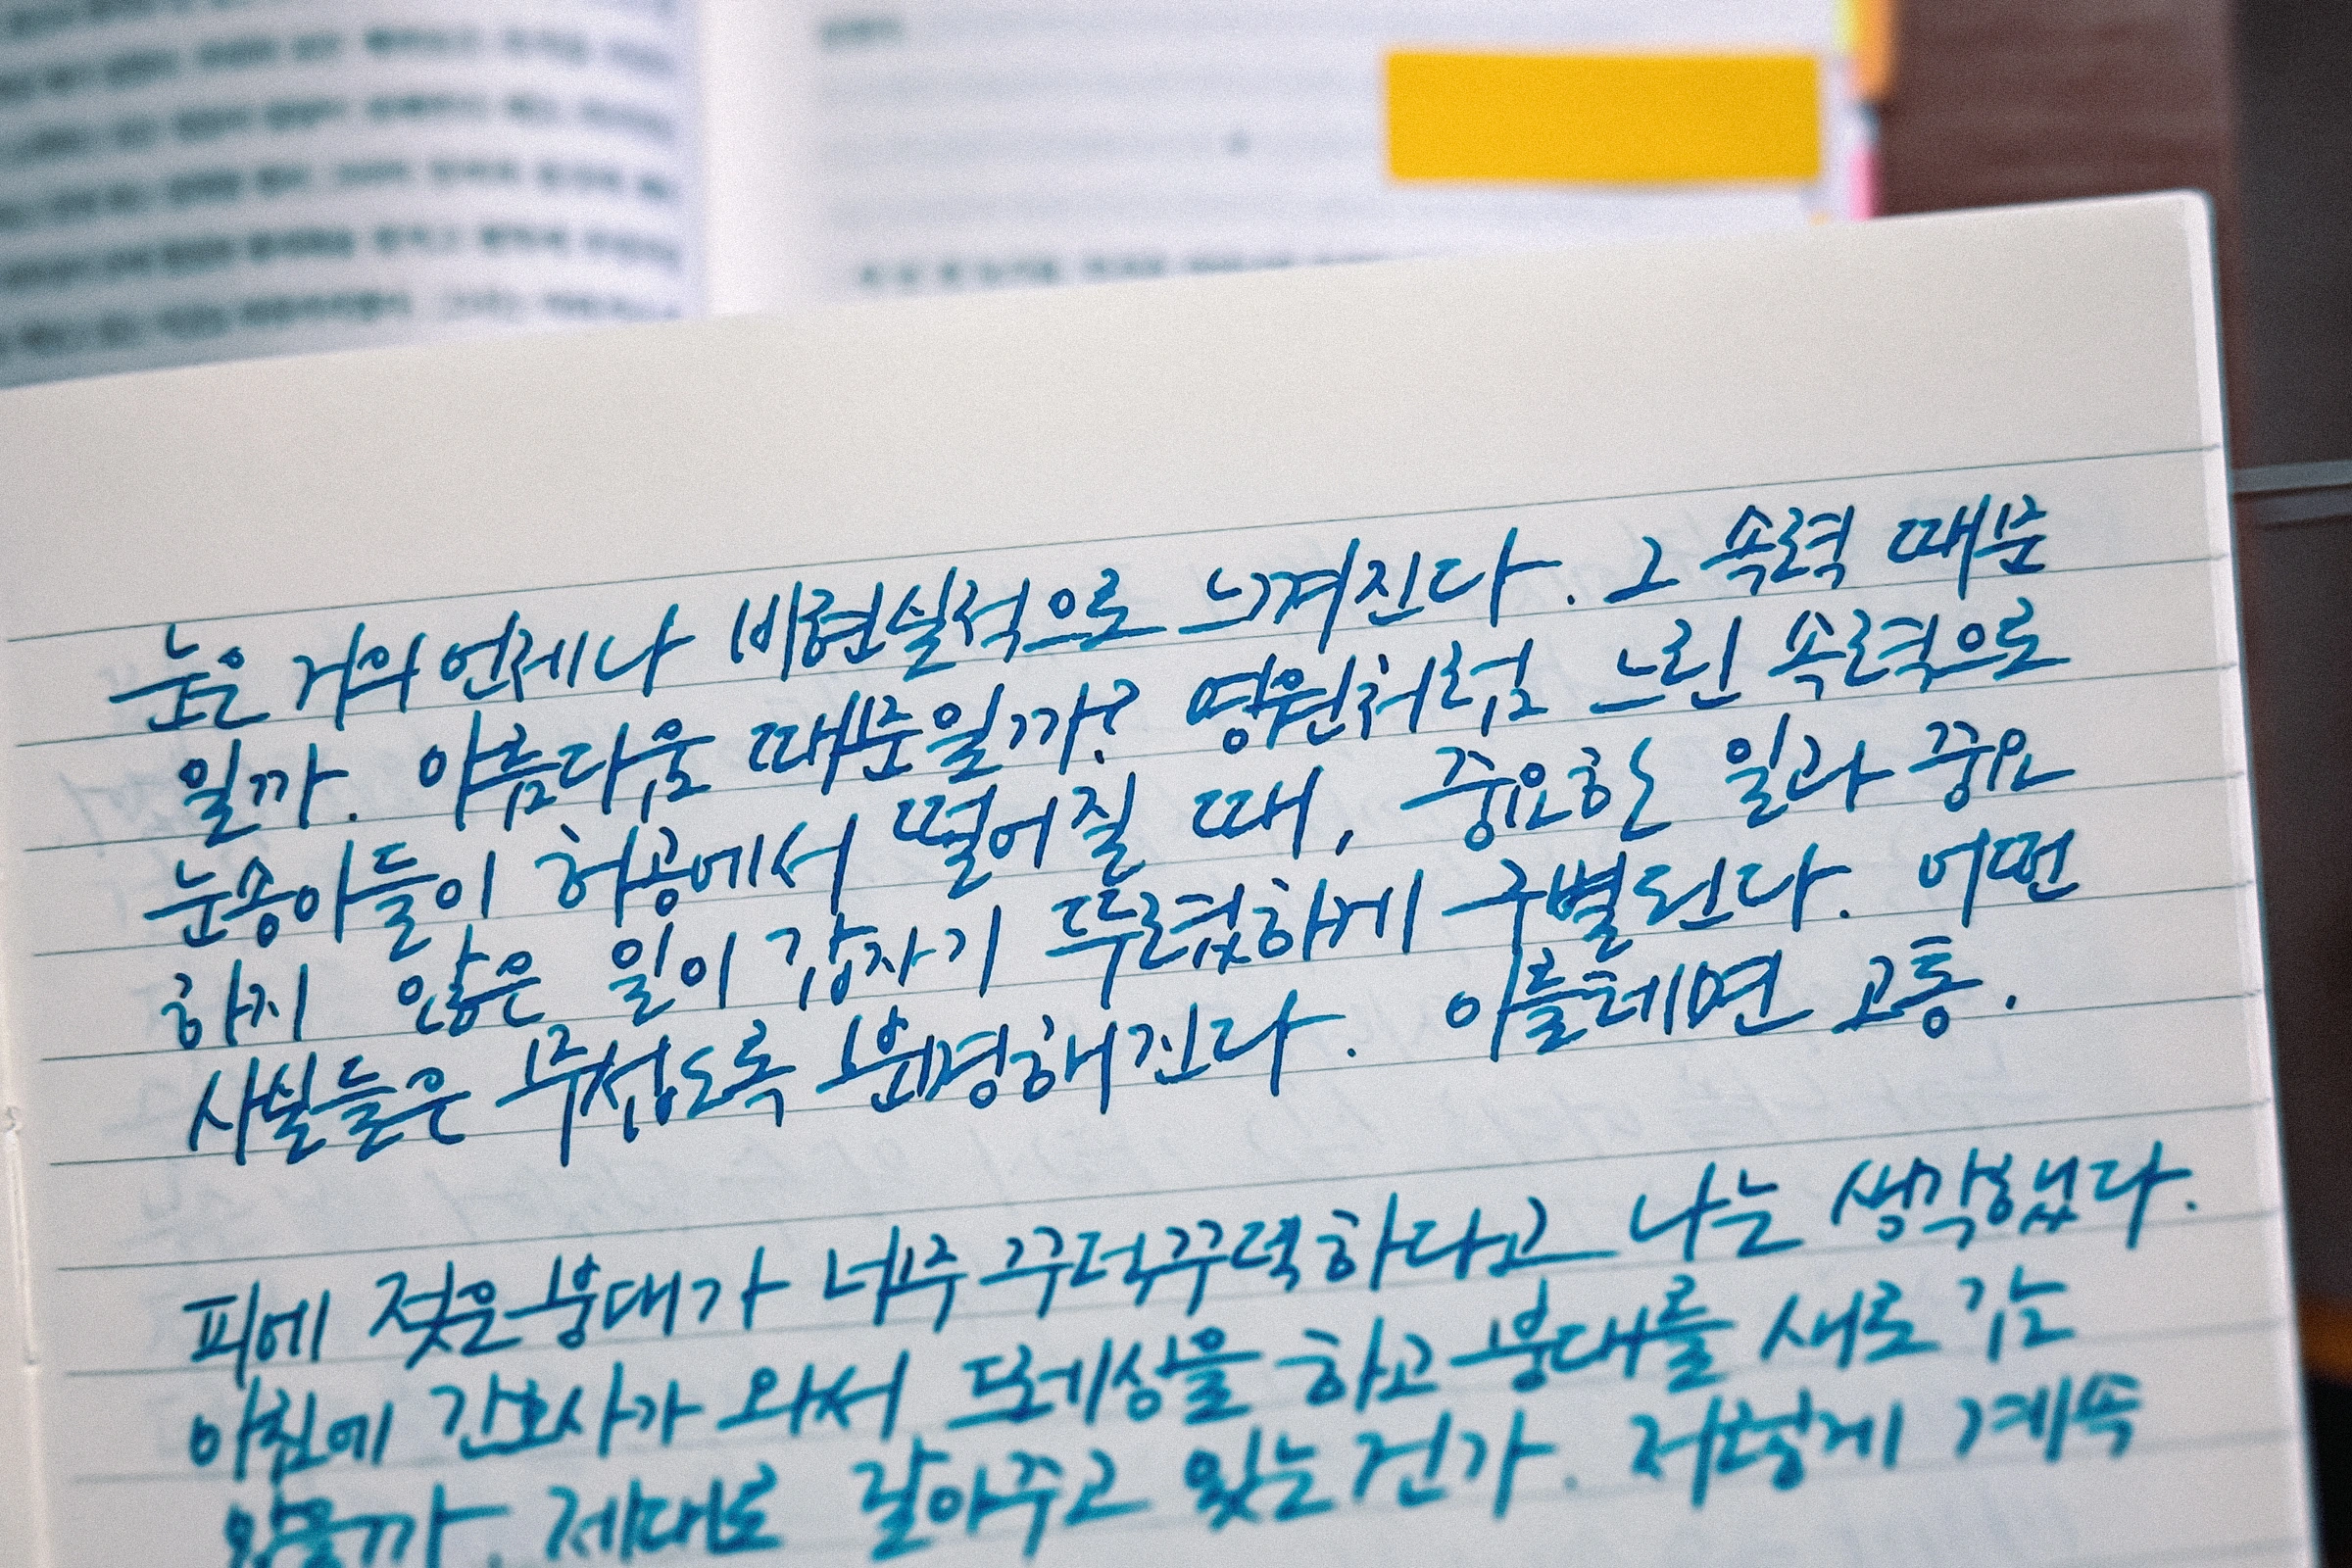 눈은 거의 언제나 비현실적으로 느껴진다. 그 속력 때문
일까. 아름다움 때문일까? 영원처럼 느린 속력으로
눈송이들이 허공에서 떨어질 때, 중요한 일과 중요
하지 않은 일이 갑자기 뚜렷하게 구별된다. 어떤
사실들은 무섭도록 분명해진다. 이를테면 고통.
피에 젖은 붕대가 너무 꾸덕꾸덕하다고 나는 생각했다.
아침에 간호사가 와서 드레싱을 하고 붕대를 새로 감
았을까. 제대로 갈아주고 있는 건가. 저렇게 계속